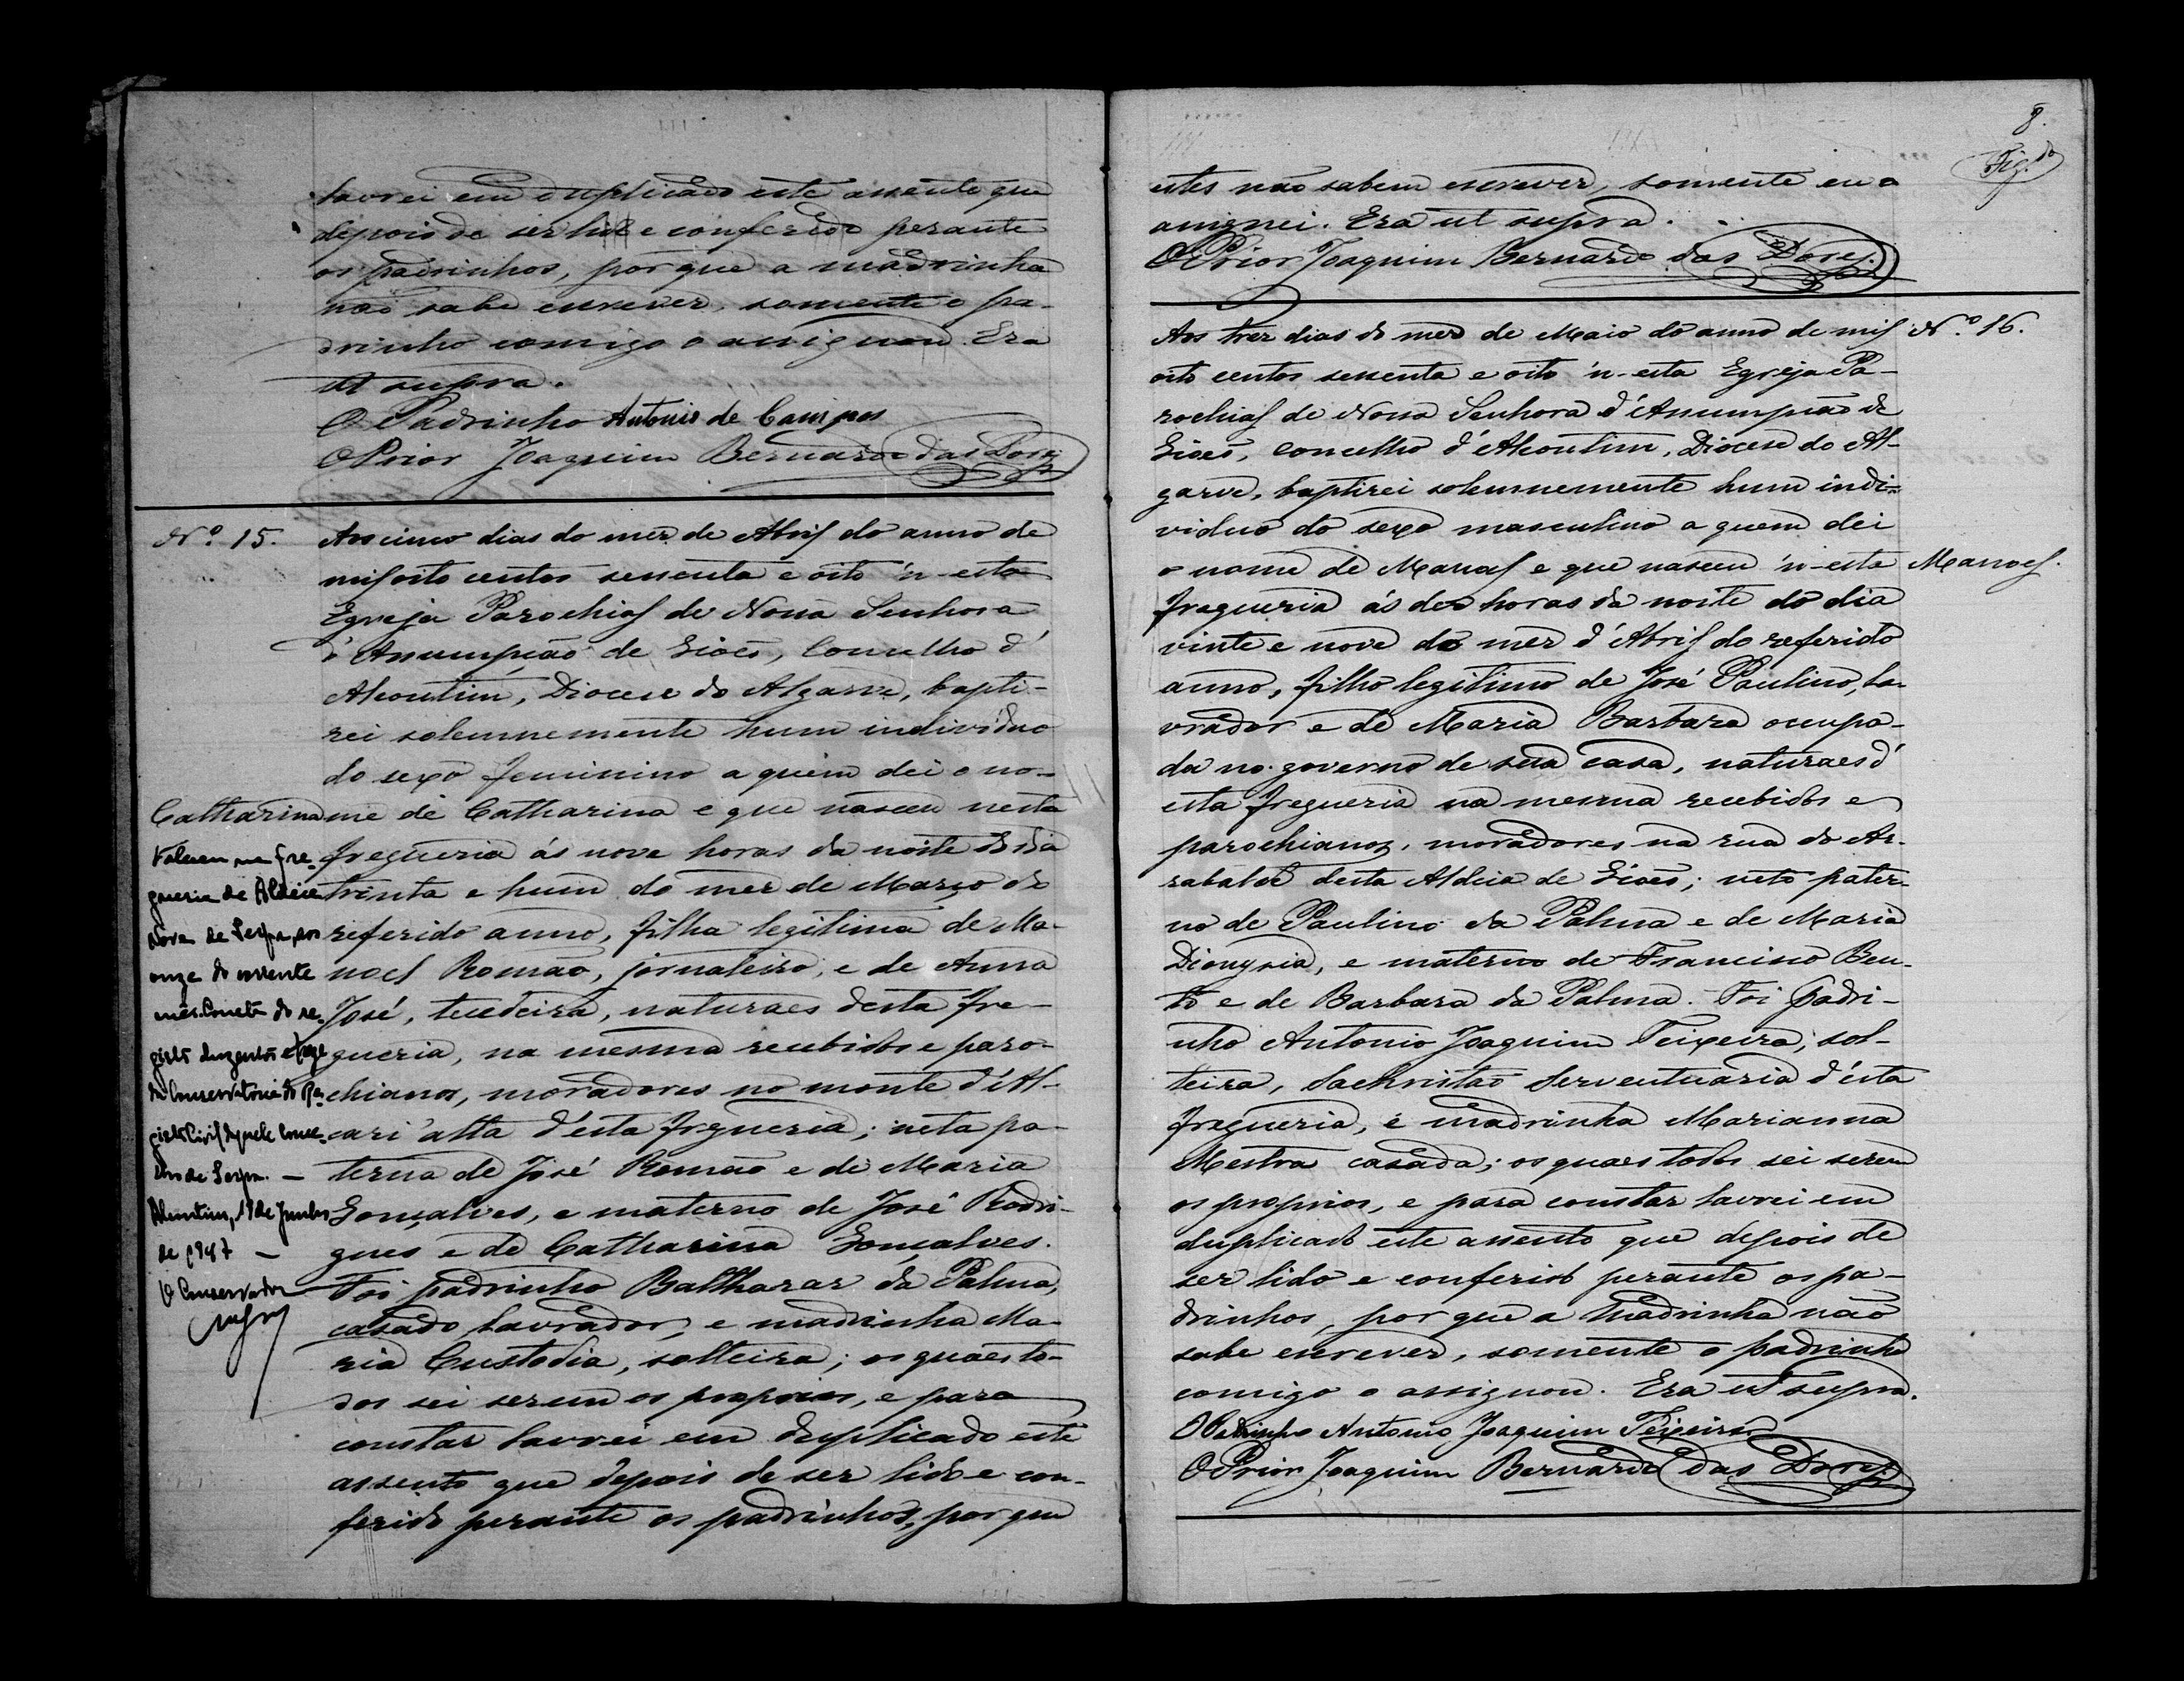 lavrei em duplicado este assento que
depois de ser lido e conferido perante
os padrinhos, por que a madrinha
não sabe escrever, somente o pa-
drinho comigo o assignou. Era
ut supra.
O Padrinho Antonio de Campos
O Prior Joaquim Bernardo das Dores
Nº 15.
Aos cinco dias do mez de Abril do anno de
mil oito centos sessenta e oito n'esta
Egreja Parochial de Nossa Senhora
d'Assumpção de Giões, Concelho d'
Alcoutim, Diocese do Algarve, bapti-
zei solemnemente hum individuo
do sexo feminino a quem dei o no-
Catharina
me de Catharina e que nasceu nesta
freguezia ás nove horas da noite do dia
trinta e hum do mez de Março do
referido anno, filha legitima de Ma-
noel Romão, jornaleiro, e de Anna
José, tecedeira, naturaes desta fre-
guezia, na mesma recebidos e paro-
chianos, moradores no monte d'Al-
cari'alta d'esta freguezia; neta pa-
terna de José Romão e de Maria
Gonçalves, e materno de José Rodri-
gues e de Catharina Gonçalves.
Foi padrinho Balthazar da Palma,
casado lavrador, e madrinha Ma-
ria Custodia, solteira; os quaes to-
dos sei serem os proprios, e para
constar lavrei em duplicado este
assento que depois de ser lido e con-
ferido perante os padrinhos, por que
Faleceu na fre-
guezia de Aldeia
Nova de Serpa, aos
onze do corrente
mês. Consta do re-
gisto duzentos e
da Conservatória do Re-
gisto Civil daquele conce-
lho de Serpa. —
Alcoutim, 17 de Junho
de 1947 —
O Conservador
8.
Fig.do
estes não sabem escrever, somente eu o
assignei. Era ut supra.
O Prior Joaquim Bernardo das Dores
Aos trez dias do mez de Maio do anno de mil
Nº 16.
oito centos sessenta e oito n'esta Egreja Pa-
rochial de Nossa Senhora d'Assumpção de
Giões, Concelho d'Alcoutim, Diocese do Al-
garve, baptizei solemnemente hum indi-
viduo do sexo masculino a quem dei
o nome de Manoel e que nasceu n'esta
Manoel.
freguezia ás dez horas da noite do dia
vinte e nove do mez d'Abril do referido
anno, filho legitimo de José Paulino, la-
vrador e de Maria Barbara occupa-
da no governo de sua casa, naturaes d'
esta freguezia na mesma recebidos e
parochianos, moradores na rua do Ar-
rabalde desta Aldeia de Giões; neto pater-
no de Paulino da Palma e de Maria
Dionysia, e materno de Francisco Ben-
to e de Barbara da Palma. Foi padri-
nho Antonio Joaquim Teixeira, sol-
teiro, Sachristão Serventuario d'esta
freguezia, e madrinha Marianna
Mestra casada; os quaes todos sei serem
os proprios, e para constar lavrei em
duplicado este assento que depois de
ser lido e conferido perante os pa-
drinhos, por que a Madrinha não
sabe escrever, somente o padrinho
comigo o assignou. Era ut supra.
O Padrinho Antonio Joaquim Teixeira
O Prior Joaquim Bernardo das Dores